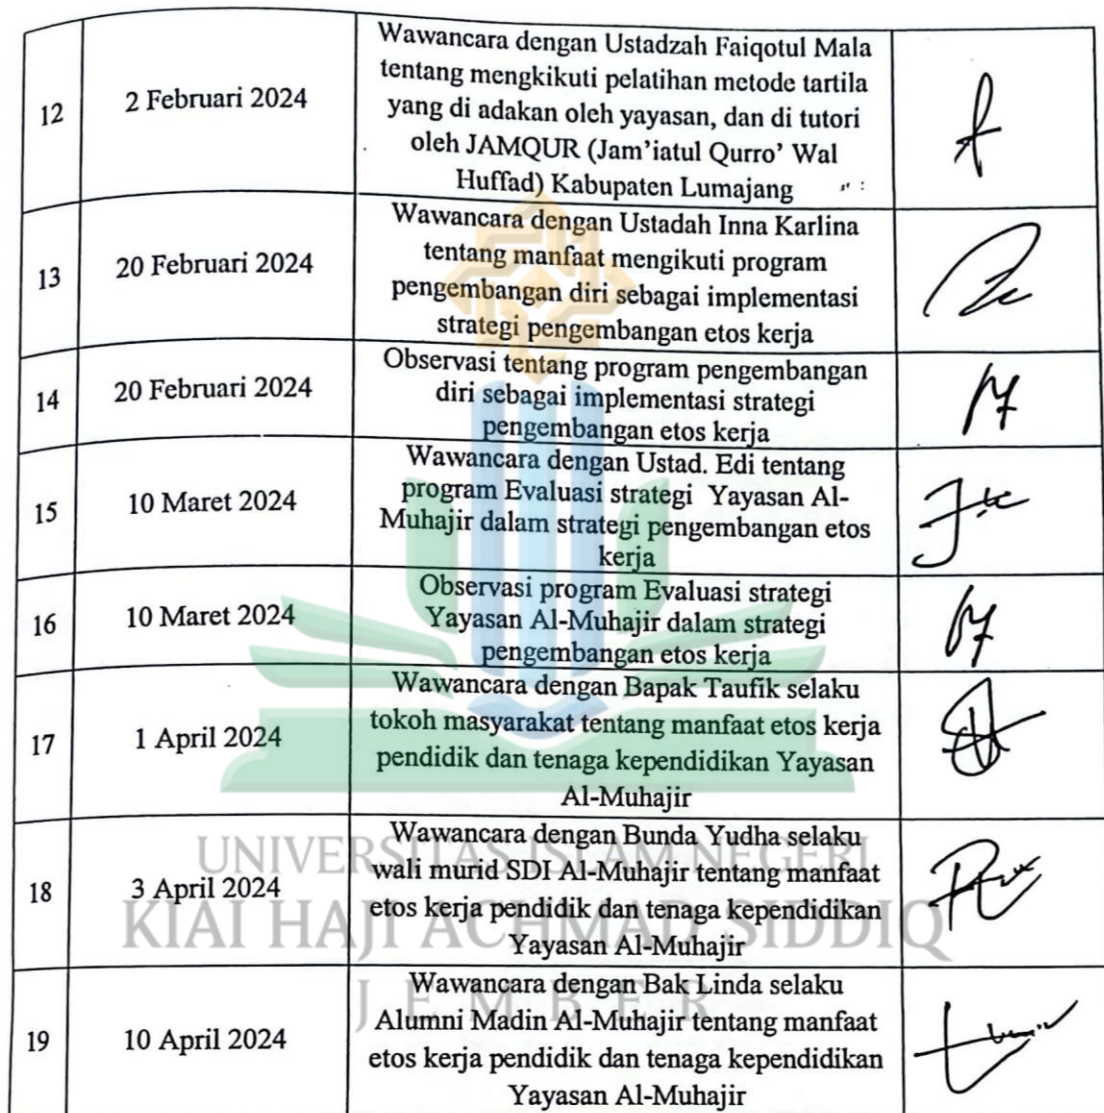 12
2 Februari 2024
Wawancara dengan Ustadzah Faiqotul Mala
tentang mengkikuti pelatihan metode tartila
yang di adakan oleh yayasan, dan di tutori
oleh JAMQUR (Jam'iatul Qurro' Wal
Huffad) Kabupaten Lumajang
13
20 Februari 2024
Wawancara dengan Ustadah Inna Karlina
tentang manfaat mengikuti program
pengembangan diri sebagai implementasi
strategi pengembangan etos kerja
14
20 Februari 2024
Observasi tentang program pengembangan
diri sebagai implementasi strategi
pengembangan etos kerja
15
10 Maret 2024
Wawancara dengan Ustad. Edi tentang
program Evaluasi strategi Yayasan Al-
Muhajir dalam strategi pengembangan etos
kerja
16
10 Maret 2024
Observasi program Evaluasi strategi
Yayasan Al-Muhajir dalam strategi
pengembangan etos kerja
17
1 April 2024
Wawancara dengan Bapak Taufik selaku
tokoh masyarakat tentang manfaat etos kerja
pendidik dan tenaga kependidikan Yayasan
Al-Muhajir
18
3 April 2024
Wawancara dengan Bunda Yudha selaku
wali murid SDI Al-Muhajir tentang manfaat
etos kerja pendidik dan tenaga kependidikan
Yayasan Al-Muhajir
19
10 April 2024
Wawancara dengan Bak Linda selaku
Alumni Madin Al-Muhajir tentang manfaat
etos kerja pendidik dan tenaga kependidikan
Yayasan Al-Muhajir
UNIVERSITAS ISLAM NEGERI
KIAI HAJI ACHMAD SIDDIQ
JEMBER